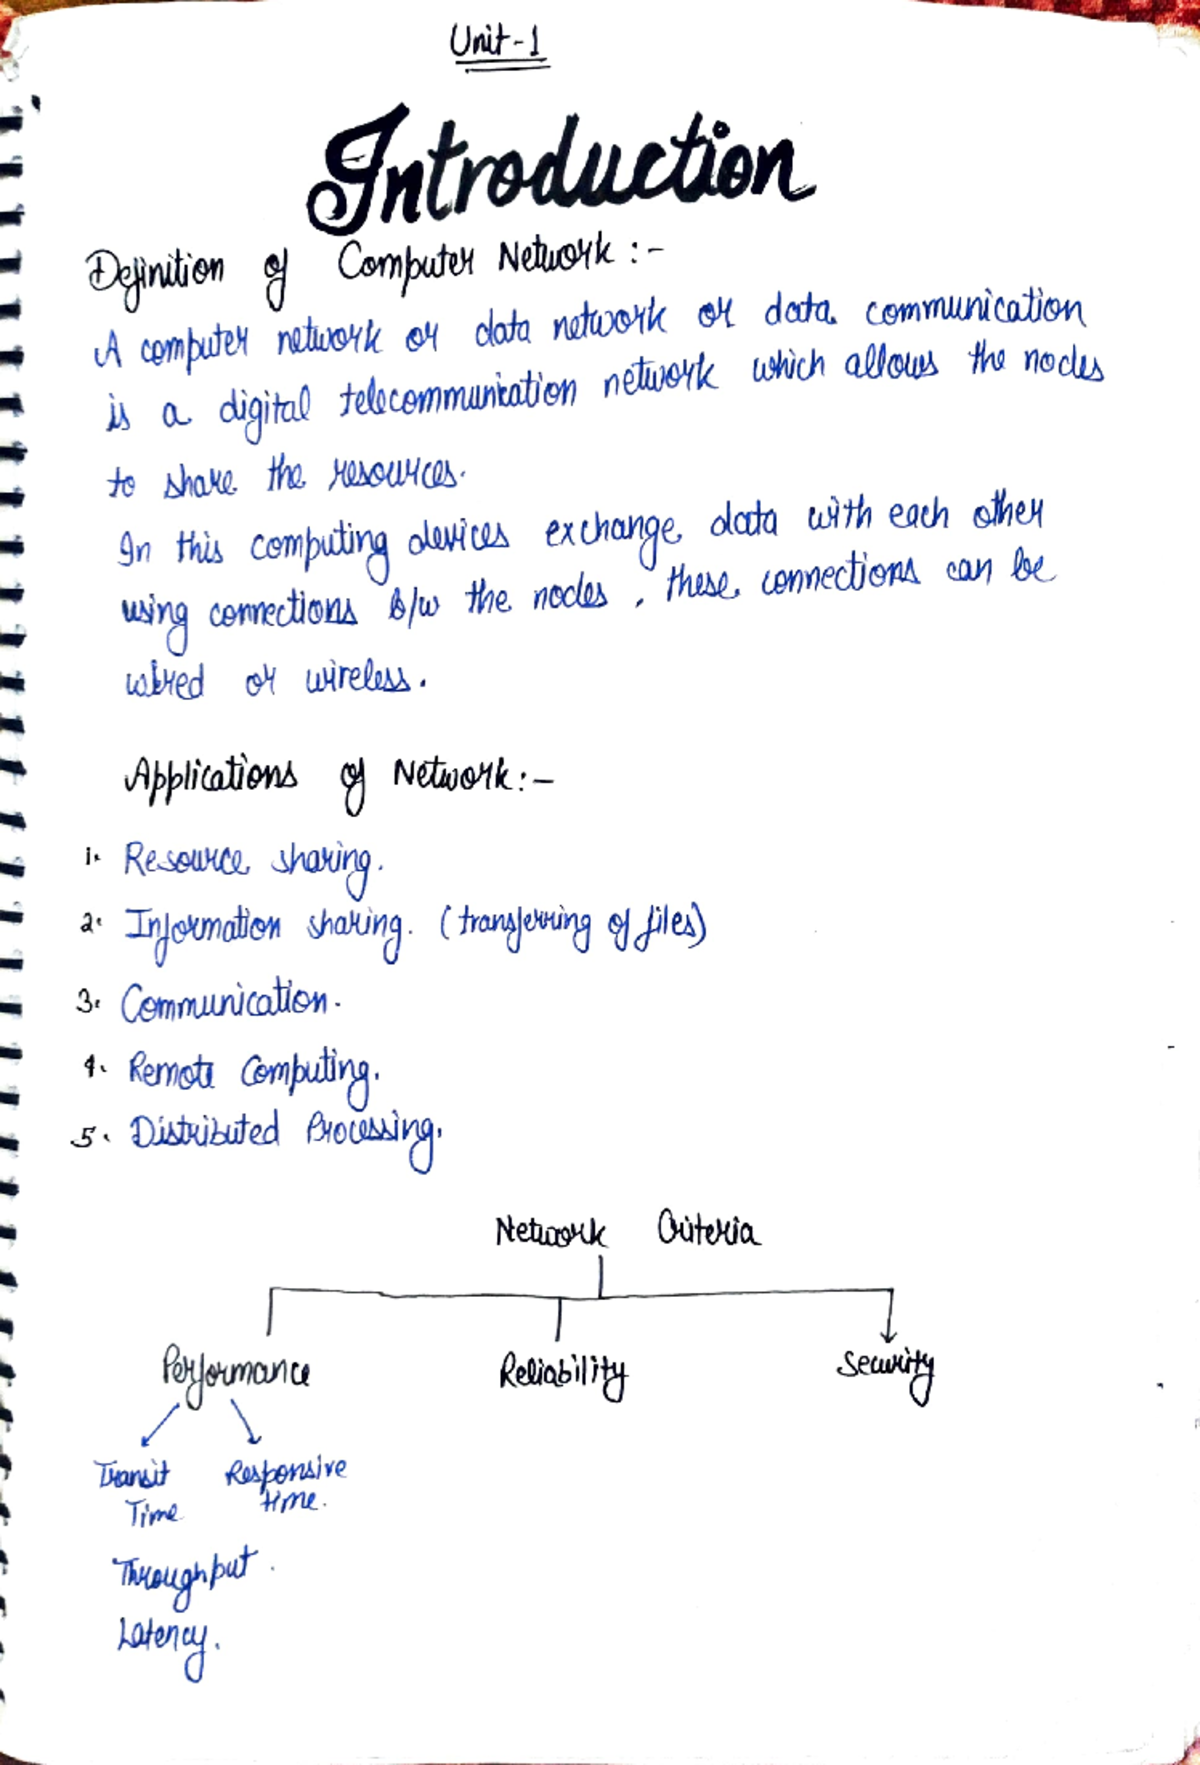 Unit-1
Introduction
Definition of Computer Network :-
A computer network or data network or data communication
is a digital telecommunication network which allows the nodes
to share the resources.
In this computing devices exchange data with each other
using connections b/w the nodes, these connections can be
wired or wireless.
Applications of Network:-
1. Resource sharing.
2. Information sharing. (transferring of files)
3. Communication.
4. Remote Computing.
5. Distributed Processing.
Network Criteria
Performance Reliability Security
Transit Responsive
Time time.
Throughput.
Latency.